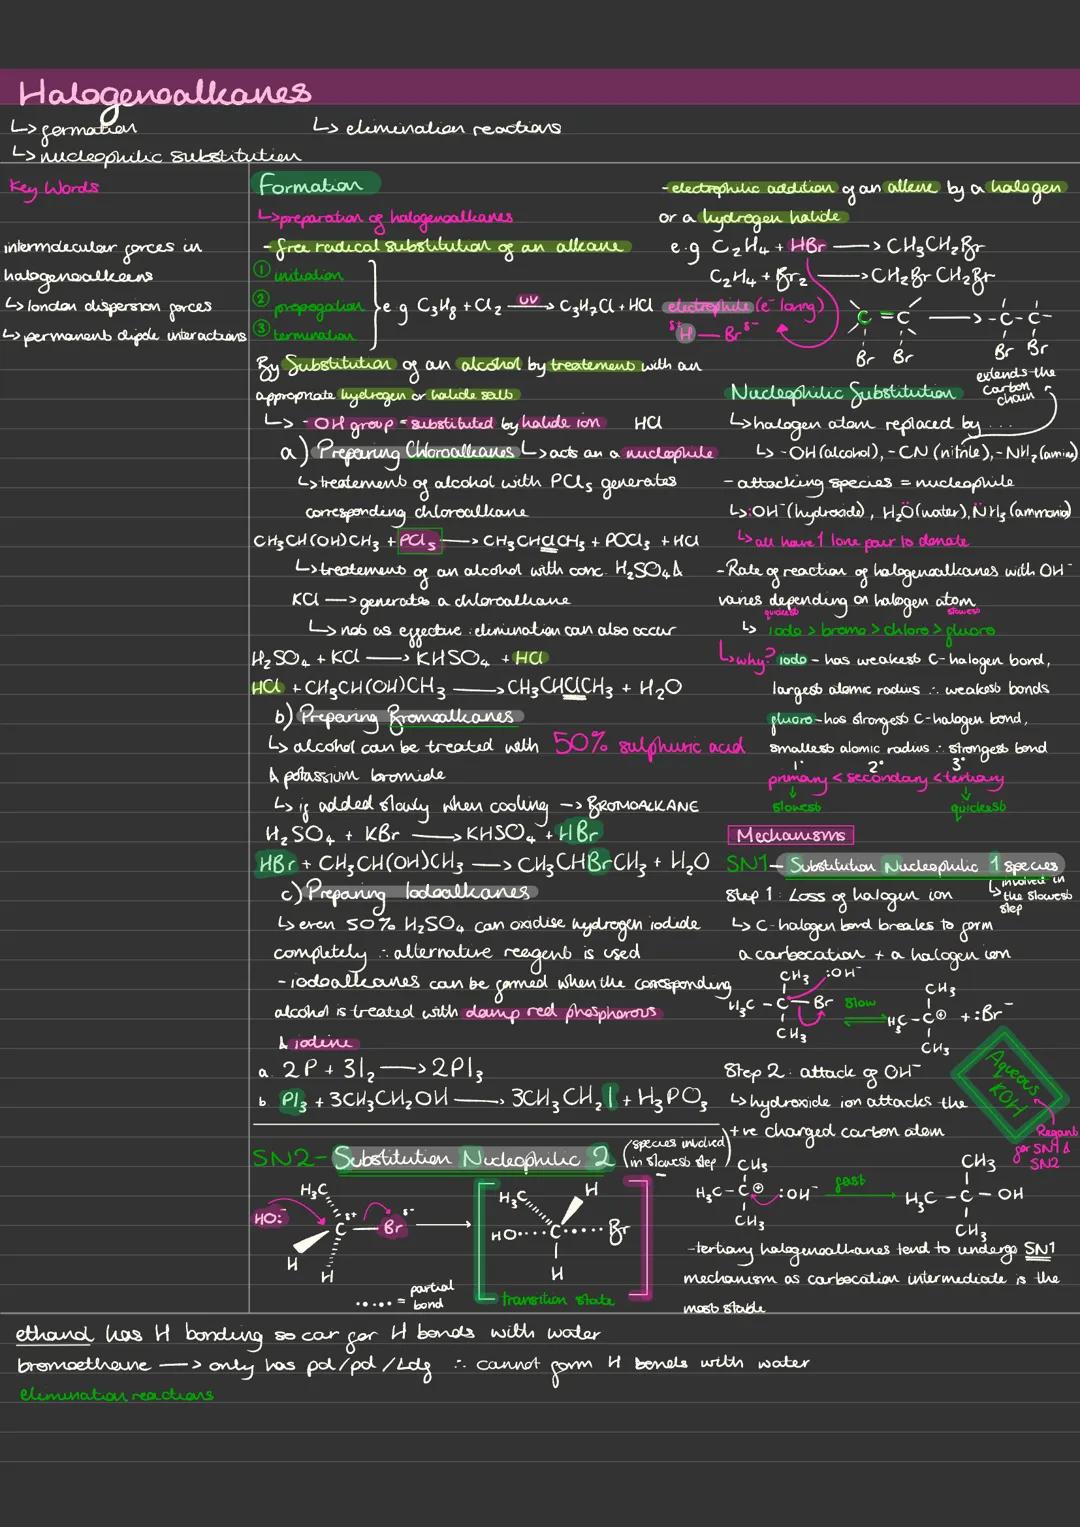 Halogenoalkanes
↳ formation
↳ elimination reactions
↳ nucleophilic substitution
Key Words
intermolecular forces in
halogenoalkeens
↳ london dispersion forces
↳ permanent dipole interactions
Formation
↳ preparation of halogenoalkanes
- free radical substitution of an alkane
① initiation
② propogation
③ termination
e.g C₃H₈ + Cl₂ —UV→ C₃H₇Cl + HCl
By Substitution of an alcohol by treatement with an
appropriate hydrogen or halide salt
↳ - OH group = substituted by halide ion HCl
a) Preparing Chloroalkanes ↳ acts as a nucleophile
↳ treatement of alcohol with PCl₅ generates
corresponding chloroalkane
CH₃CH(OH)CH₃ + PCl₅ → CH₃CHClCH₃ + POCl₃ + HCl
↳ treatement of an alcohol with conc. H₂SO₄ &
KCl → generates a chloroalkane
↳ not as effective ∴ elimination can also occur
H₂SO₄ + KCl → KHSO₄ + HCl
HCl + CH₃CH(OH)CH₃ → CH₃CHClCH₃ + H₂O
b) Preparing Bromoalkanes
↳ alcohol can be treated with 50% sulphuric acid
& potassium bromide
↳ if added slowly when cooling → BROMOALKANE
H₂SO₄ + KBr → KHSO₄ + HBr
HBr + CH₃CH(OH)CH₃ → CH₃CHBrCH₃ + H₂O
c) Preparing Iodoalkanes
↳ even 50% H₂SO₄ can oxidise hydrogen iodide
completely ∴ alternative reagent is used
- iodoalkanes can be formed when the corresponding
alcohol is treated with damp red phosphorous
& iodine
a. 2P + 3I₂ → 2PI₃
b. PI₃ + 3CH₃CH₂OH → 3CH₃CH₂I + H₃PO₃
SN2 - Substitution Nucleophilic 2 (species involved
in slowest step)
HO:⁻
H₃C
C δ+
Br δ-
H
H
H₃C
H
HO·····C·····Br
H
transition state
····· = partial
bond
- electrophilic addition of an alkene by a halogen
or a hydrogen halide
e.g C₂H₄ + HBr → CH₃CH₂Br
C₂H₄ + Br₂ → CH₂BrCH₂Br
electrophile (e⁻ loving)
δ+ H — Br δ-
C = C → - C - C -
Br Br
Br Br
extends the
carbon
chain
Nucleophilic Substitution
↳ halogen atom replaced by ...
↳ - OH (alcohol), - CN (nitrile), - NH₂ (amine)
- attacking species = nucleophile
↳ :OH⁻ (hydroxide), H₂Ö (water), N̈H₃ (ammonia)
↳ all have 1 lone pair to donate
- Rate of reaction of halogenoalkanes with OH⁻
varies depending on halogen atom
quickest
slowest
↳ iodo > bromo > chloro > fluoro
↳ why? iodo - has weakest C-halogen bond,
largest atomic radius ∴ weakest bonds
fluoro - has strongest C-halogen bond,
smallest atomic radius ∴ strongest bond
1° 2° 3°
primary < secondary < tertiary
↓ ↓
slowest quickest
Mechanisms
SN1 - Substitution Nucleophilic 1 species
↳ involved in
the slowest
step
Step 1: Loss of halogen ion
↳ C-halogen bond breaks to form
a carbocation + a halogen ion
CH₃ :OH⁻
H₃C - C — Br
CH₃
Slow
CH₃
H₃C - C⊕ + :Br⁻
CH₃
Step 2: attack of OH⁻
↳ hydroxide ion attacks the
+ve charged carbon atom
Aqueous
KOH
Reqant
for SN1 &
SN2
CH₃
H₃C - C⊕ :OH⁻
CH₃
fast
CH₃
H₃C - C - OH
CH₃
- tertiary halogenoalkanes tend to undergo SN1
mechanism as carbocation intermediate is the
most stable
ethanol has H bonding so can for H bonds with water
bromoethane → only has pd/pd / Ldf ∴ cannot form H bonds with water
elimination reactions